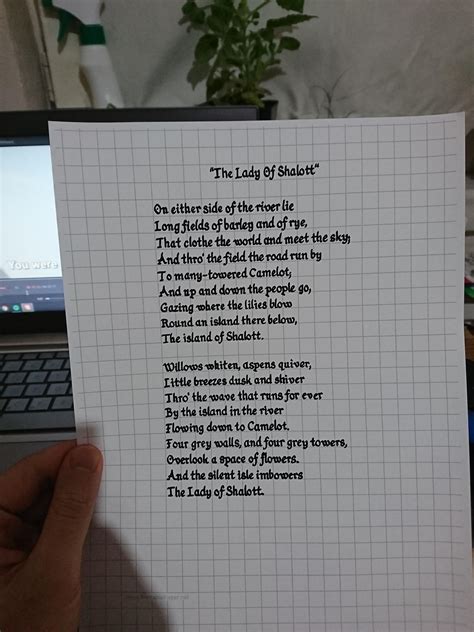 "The Lady Of Shalott"
On either side of the river lie
Long fields of barley and of rye,
That clothe the world and meet the sky;
And thro' the field the road run by
To many-towered Camelot;
And up and down the people go,
Gazing where the lilies blow
Round an island there below,
The island of Shalott.
Willows whiten, aspens quiver,
Little breezes dusk and shiver
Thro' the wave that runs for ever
By the island in the river
Flowing down to Camelot.
Four grey walls, and four grey towers,
Overlook a space of flowers.
And the silent isle imbowers
The Lady of Shalott.
You were